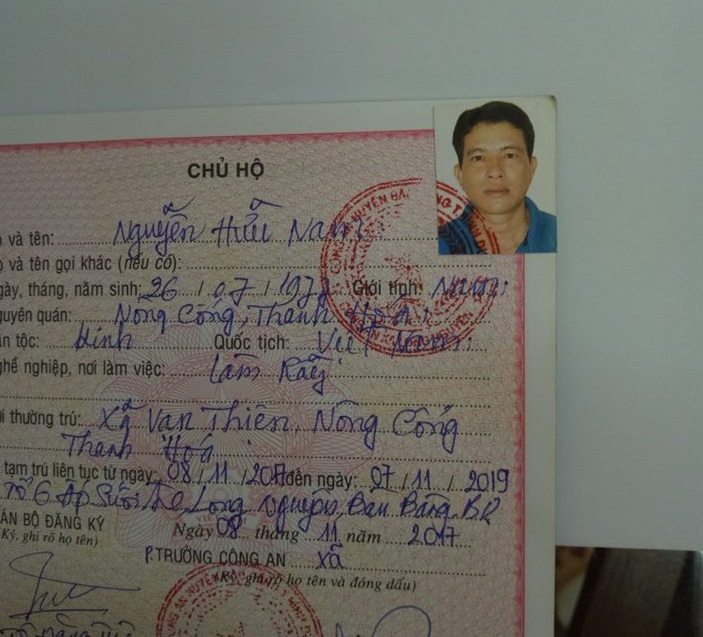 CHỦ HỘ
và tên: Nguyễn Hữu Nam
và tên gọi khác (nếu có):
ngày, tháng, năm sinh: 26 / 07 / 197 Giới tính: Nam
nguyên quán: Nông Cống, Thanh Hoá
tộc: Kinh Quốc tịch: Việt Nam
nghề nghiệp, nơi làm việc: Làm Rẫy
thường trú: Xã Vạn Thiện, Nông Cống
Thanh Hoá
tạm trú liên tục từ ngày: 08 / 11 / 2017 đến ngày: 07 / 11 / 2019
Tổ 6 Ấp Suối Long Nguyên, Bàu Bàng BD
CÁN BỘ ĐĂNG KÝ Ngày 08 tháng 11 năm 2017
Ký, ghi rõ họ tên)
P. TRƯỞNG CÔNG AN xã
(Ký, ghi rõ họ tên và đóng dấu)